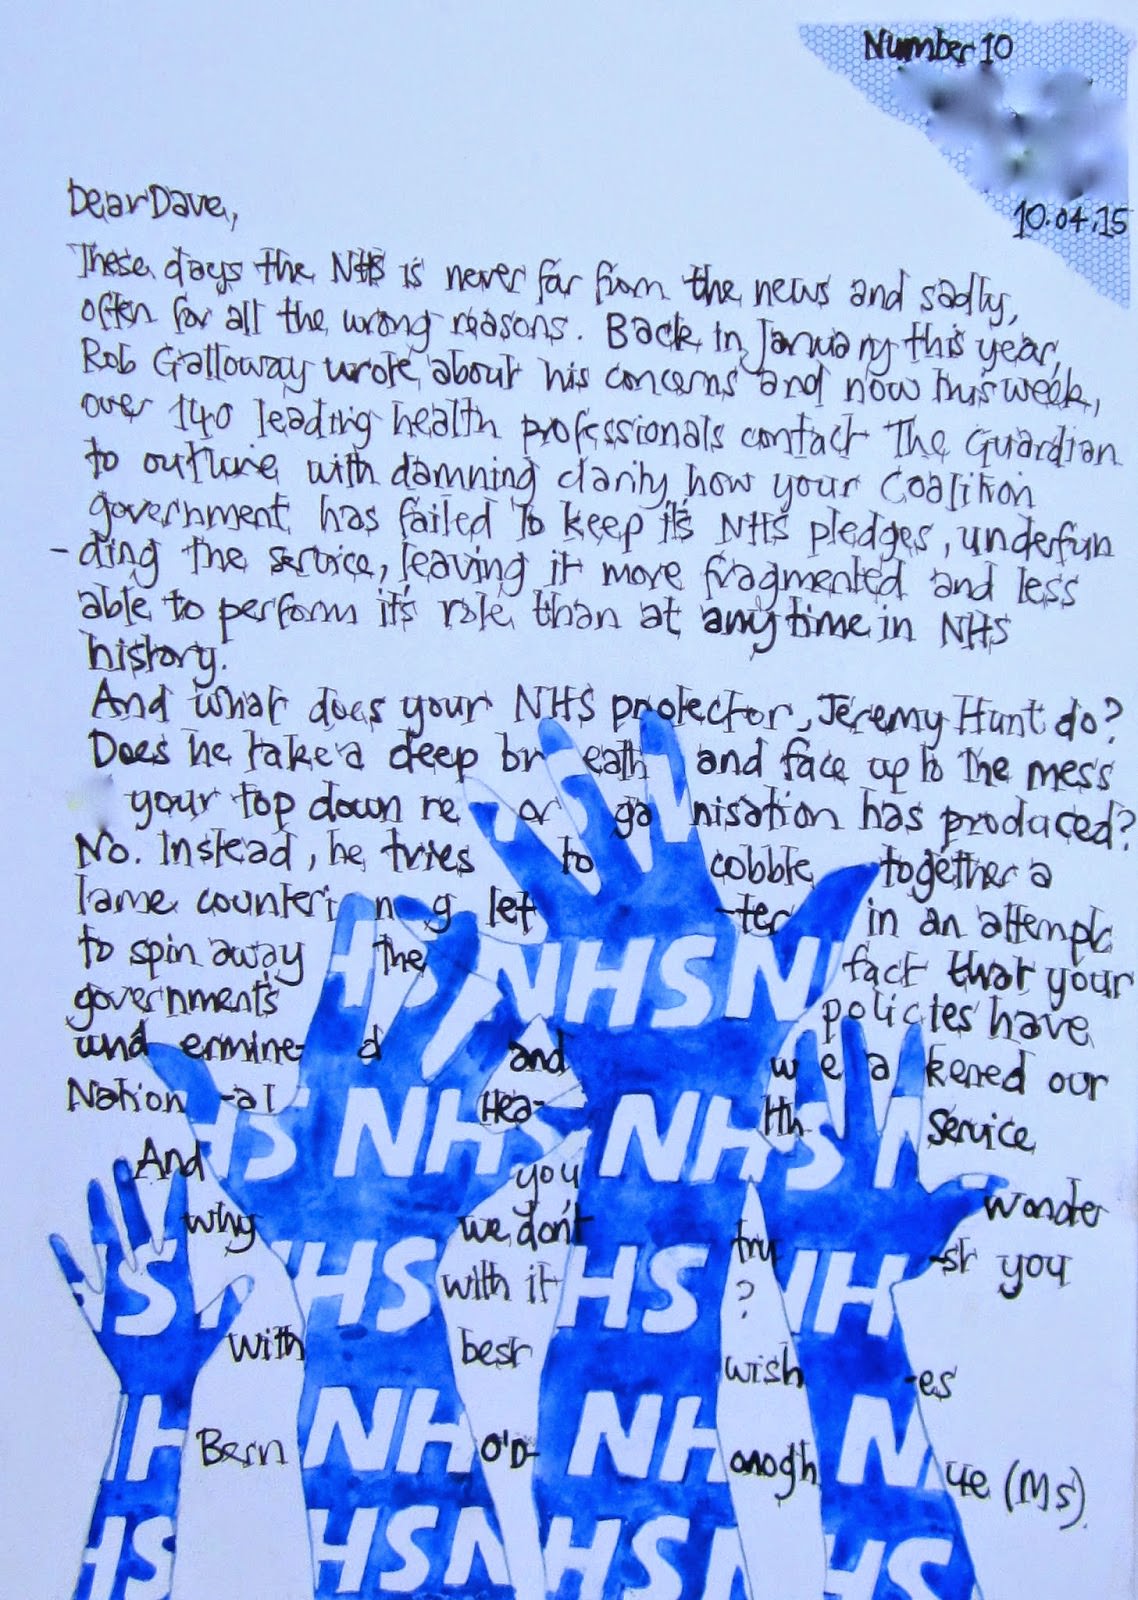 Number 10
10.04.15
Dear Dave,
These days the NHS is never far from the news and sadly,
often for all the wrong reasons. Back in January this year,
Rob Galloway wrote about his concerns and now this week,
over 140 leading health professionals contact The Guardian
to outline with damning clarity how your Coalition
government has failed to keep it's NHS pledges, underfun
-ding the service, leaving it more fragmented and less
able to perform it's role than at any time in NHS
history.
And what does your NHS protector, Jeremy Hunt do?
Does he take a deep br eath and face up to the mess
your top down re or ga nisation has produced?
No. Instead, he tries to cobble together a
lame counteri n g let -ter in an attempt
to spin away the fact that your
government's policies have
und ermine- d and we a kened our
Nation -al Hea- lth Service
And you wonder
why we don't tru -st you
with it ?
With best wish -es
Bern O'D- onogh ue (Ms)
HS NHSN
HS NHS NHS N
HS N HS HS NH
H NH NH N
HS HSN HSN HS